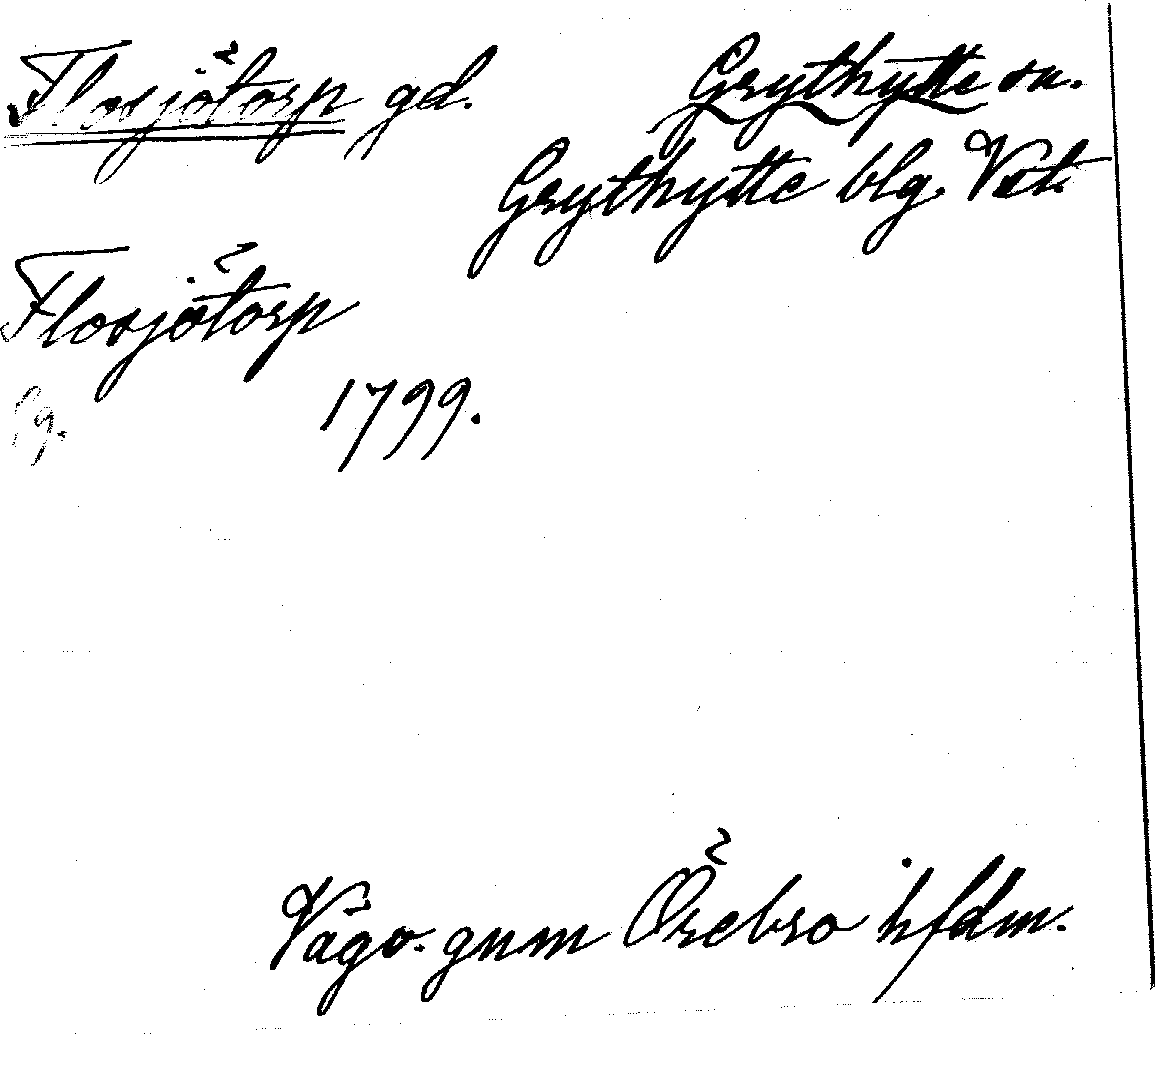 Flosjötorp gd. Grythytte sn.
Grythytte blg. Vstm.
Flosjötorp
1799.
Vägv. gnm Örebro höfdm.